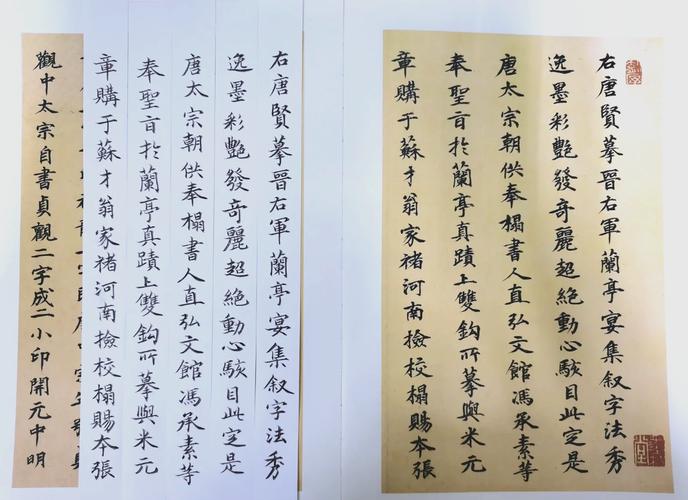 右唐賢摹晉右軍蘭亭宴集叙字法秀
逸墨彩艷發奇麗超絶動心駭目此定是
唐太宗朝供奉榻書人直弘文館馮承素等
奉聖旨於蘭亭真蹟上雙鈎所摹與米元
章購于蘇才翁家禇河南撿挍榻賜夲張
右唐賢摹晉右軍蘭亭宴集叙字法秀
逸墨彩艷發奇麗超絶動心駭目此定是
唐太宗朝供奉榻書人直弘文館馮承素等
奉聖旨於蘭亭真蹟上雙鈎所摹與米元
章購于蘇才翁家禇河南撿挍榻賜夲張
觀中太宗自書貞觀二字成二小印開元中明